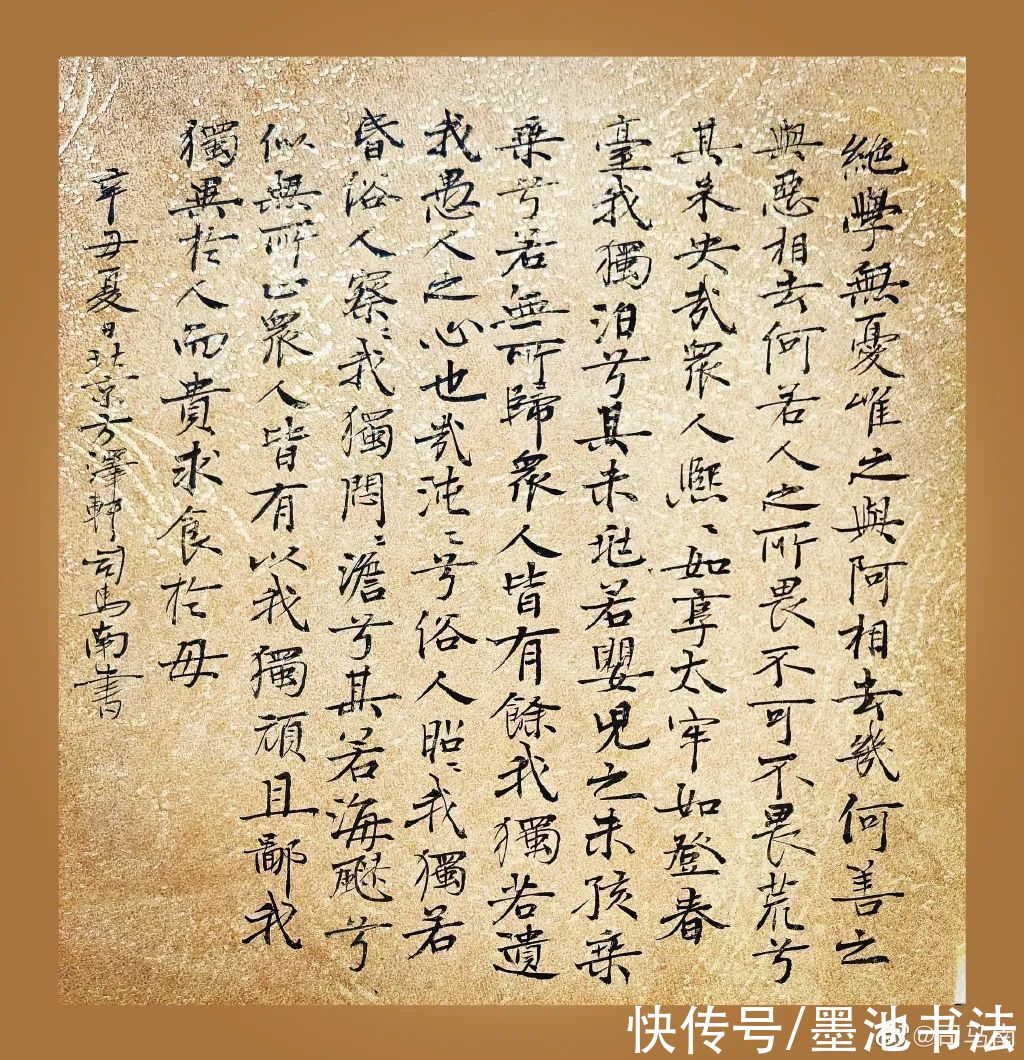 絕學無憂唯之與阿相去幾何善之
與惡相去何若人之所畏不可不畏荒兮
其未央哉眾人熙〻如享太牢如登春
臺我獨泊兮其未兆若嬰兒之未孩乘
乘兮若無所歸眾人皆有餘我獨若遺
我愚人之心也哉沌〻兮俗人昭〻我獨若
昏俗人察〻我獨悶〻澹兮其若海飂兮
似無所止眾人皆有以我獨頑且鄙我
獨異於人而貴求食於母
辛丑夏日北京方澤軒司馬南書
快传号/墨池书法
@司马南